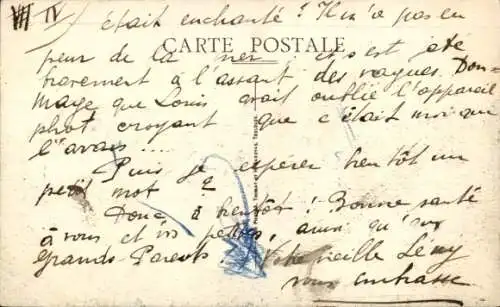 VII IV
était enchanté ! Il n'a pas eu
CARTE POSTALE
peur de la mer et s'est jeté
bravement à l'assaut des vagues. Dom-
mage que Louis avait oublié l'appareil
phot croyant que c'était moi qui
l'avais ....
Puis je espérer bientôt un
petit mot ?
Donc à bientôt ! Bonne santé
à vous et vos petites, ainsi qu'aux
Grands Parents. Votre vieille Lény
vous embrasse